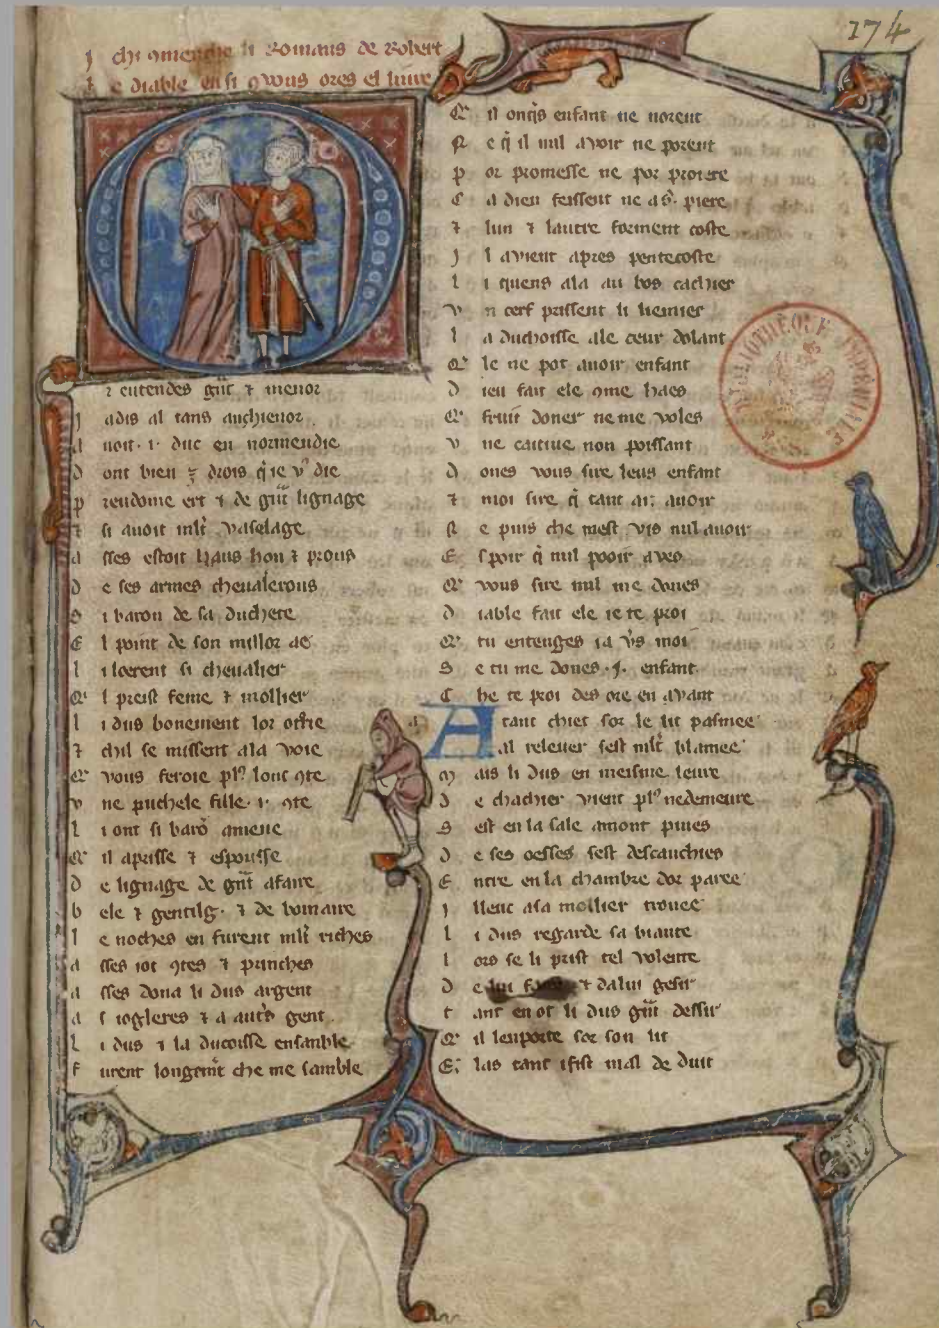 174
J chi qmenche li Romans de Robert
l e diable ensi qvous ores el livre
O
r entendes gñt ⁊ menor
J adis al tans anchienor
a uoit · i · duc en normendie
D ont bien ẽ drois q̃ ie v9 die
p reudome ert ⁊ de gñt lignage
⁊ si auoit mlt̃ vaselage
a sses estoit haus hon ⁊ prous
D e ses armes cheualerous
S i baron de sa duchete
E l point de son millor ae
l i loerent si cheualier
Q̃ l preist feme ⁊ mollier
l i dus bonement lor otrie
⁊ chil se missent ala voie
Q̃ vous feroie pl9 lonc 9te
v ne puchele fille · i · 9te
l i ont si barõ amene
Q̃ il aprisse ⁊ espousse
D e lignage de gñt afaire
b ele ⁊ gentilg · ⁊ de bomaire
l e noches en furent mlt̃ riches
a sses iot 9tes ⁊ princhies
a sses dona li dus argent
a s iogleres ⁊ a autr̃s gent
l i dus ⁊ la ducoisse ensanble
f urent longem̃t che me samble
Q̃ il onq̃s enfant ne norent
N e q̃ il nul avoir ne porent
p or promesse ne por proiere
C a dieu feissent ne a s̃ · piere
⁊ lun ⁊ lautre forment coste
J l avient apres pentecoste
l i quens ala au bos cachier
v n cerf prissent li liemier
l a duchoisse ale ceur dolant
Q̃ le ne pot auoir enfant
D ieu fait ele 9me haes
Q̃ fruit doner neme voles
v ne caitiue non poissant
D ones vous sire leus enfant
⁊ moi sire q̃ tant ai auoir
N e puis che mest vis nul auoir
E spoir q̃ nul pooir aves
Q̃ vous sire nul me dones
D iable fait ele ie te proi
Q̃ tu entenges ia v̾s moi
S e tu me dones · j · enfant
C he te proi des ore en avant
A tant chiet sor le lit pasmee
al releuer sest mlt̃ blamee
m ais li dus en meisme leure
D e chachier vient pl9 nedemeure
S est en la sale amont puies
D e ses oesses sest descauchies
E ntre en la chambre dor paree
J lleuc asa mollier trouee
l i dus regarde sa biaute
l ors se li prist tel volente
D e lui ⁊ dalui gesir
t ant en ot li dus gñt dessir
Q̃ il lenporte sor son lit
E las tant ifist mal de duit
BIBLIOTHÈQUE IMPÉRIALE